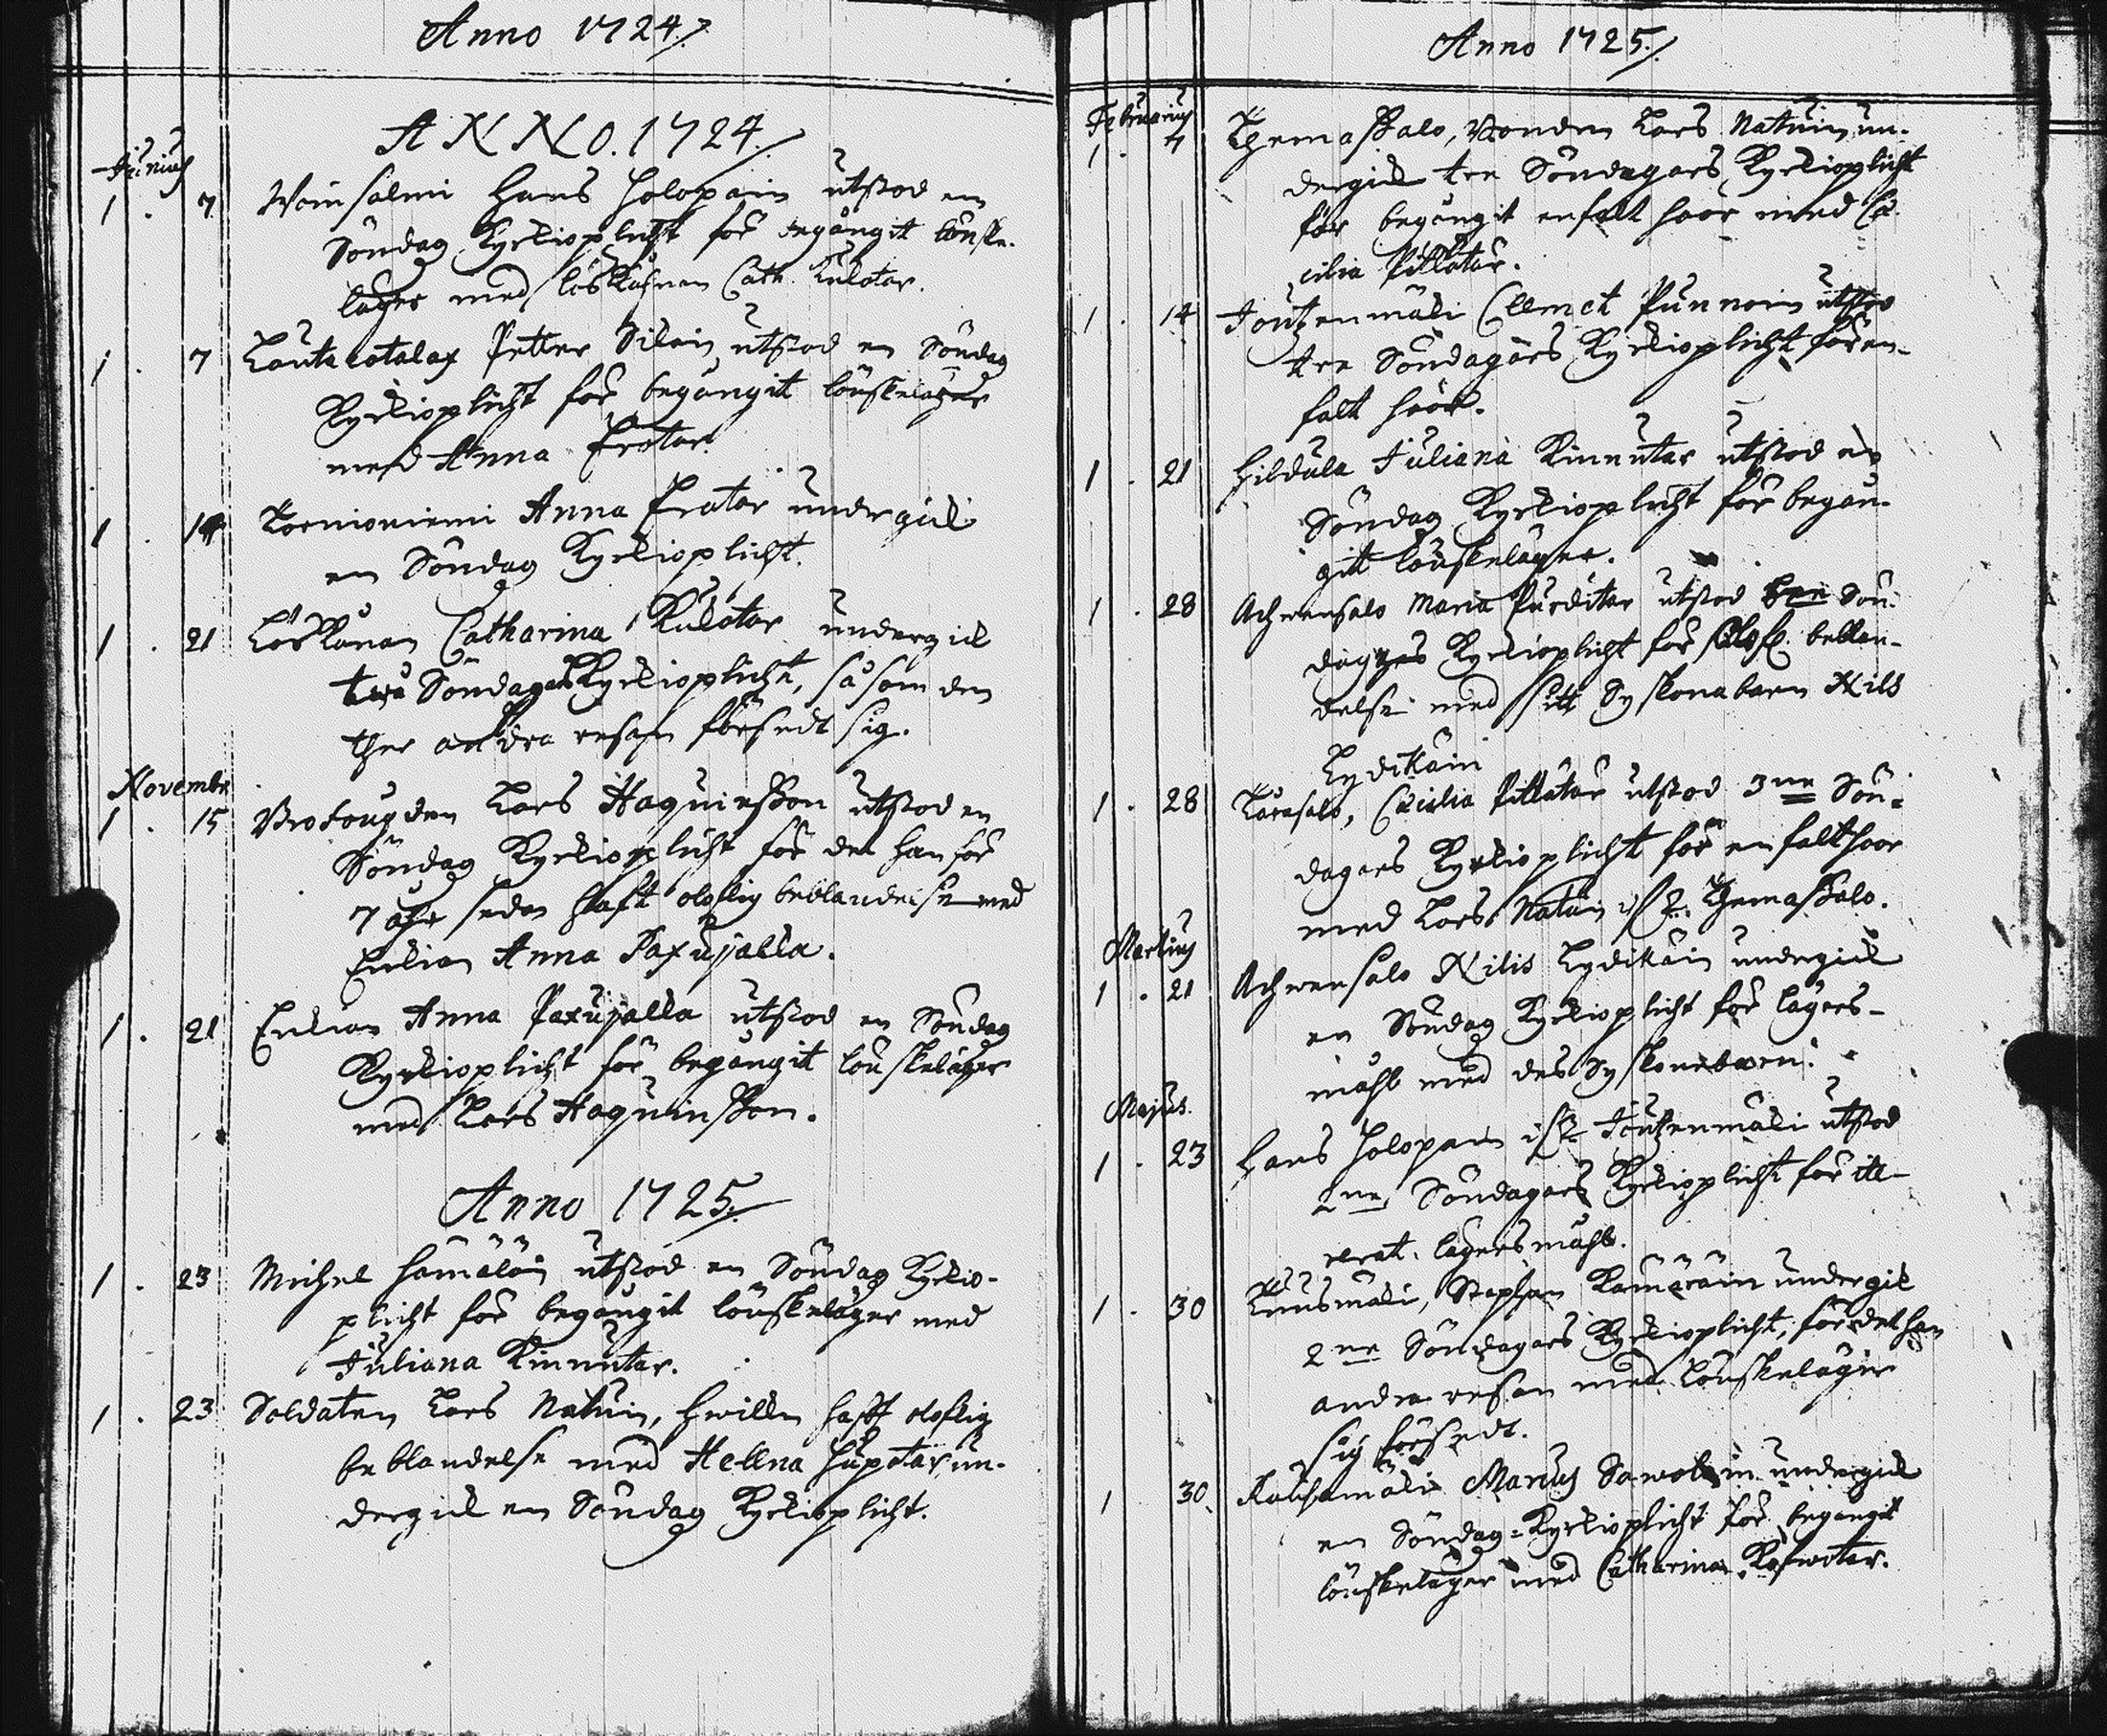 Anno 1724.
ANNO. 1724.
Junius
1 . 7 Weinsalmi Hans Holopain utstod en
Söndag Kyrkioplicht för begångit lönske-
läger med löskkåhnan Cath. Kulotar.
1 . 7 Lautacotalax Petter Silain utstod en Söndag
Kyrkioplicht för begångit lönskeläger
med Anna Erotar.
1 . 14 Tornioniemi Anna Erotar undergick
en Söndag Kyrkioplicht.
1 . 21 Löskkånan Catharina Kulotar undergick
twå Söndagars Kyrkioplicht, såsom den
ther andra resan försedt sig.
Novembr
1 . 15 Brofougden Lars Haquinsson utstod en
Söndag Kyrkioplicht för det han för
7 åhr sedan haft oloflig beblandelse med
Enkian Anna Paxujalka.
1 . 21 Enkian Anna Paxujalka utstod en Söndag
Kyrkioplicht för begångit lönskeläger
med Lars Haquinsson.
Anno 1725.
1 . 23 Michel Hämäläin utstod en Söndag Kyrkio-
plicht för begångit lönskeläger med
Juliana Kinnutar.
1 . 23 Soldaten Lars Natuin, hwilken haft oloflig
beblandelse med Hellna Hupotar, un-
dergick en Söndag Kyrkioplicht.
Anno 1725.
Februarius
1 . 7 Themassalo, Bonden Lars Natuin un-
dergick tre Söndagars Kyrkioplicht
för begångit enfalt hoor med Cæ-
cilia Pitkätar.
1 . 14 Joutzenmäki Clemet Punnoin utstod
tre Söndagars Kyrkioplicht för en-
falt hoor.
1 . 21 Hildula Juliana Kinnutar utstod en
Söndag Kyrkioplicht för begån-
git lönskeläger.
1 . 28 Achwensalo Maria Purditar utstod Sön-
dagzes Kyrkioplicht för olofl. beblan-
delse med sitt Syskonabarn Nils
Lydikäin
1 . 28 Karasalo, Cæcilia Pitkätar utstod 3ne Sön-
dagars Kyrkioplicht för enfalt hoor
med Lars Natuin ifr. Themassalo.
Martius
1 . 21 Achwensalo Nils Lydikäin undergick
en Söndag Kyrkioplicht för lägers-
måhl med des Syskonebarn.
Majus.
1 . 23 Hans Holopain ifr. Joutzenmäki utstod
2ne Söndagars Kyrkioplicht för itt-
rerat. lägersmåhl.
1 . 30 Kuusmäki, Stephan Kämäräin undergick
2ne Söndagars Kyrkioplicht, för det han
andra resan med Lönskeläger
sig försedt.
1 30. Rauhamäki Marcus Sawolain undergick
en Söndag=Kyrkioplicht för begångit
lönskeläger med Catharina Roswotar.